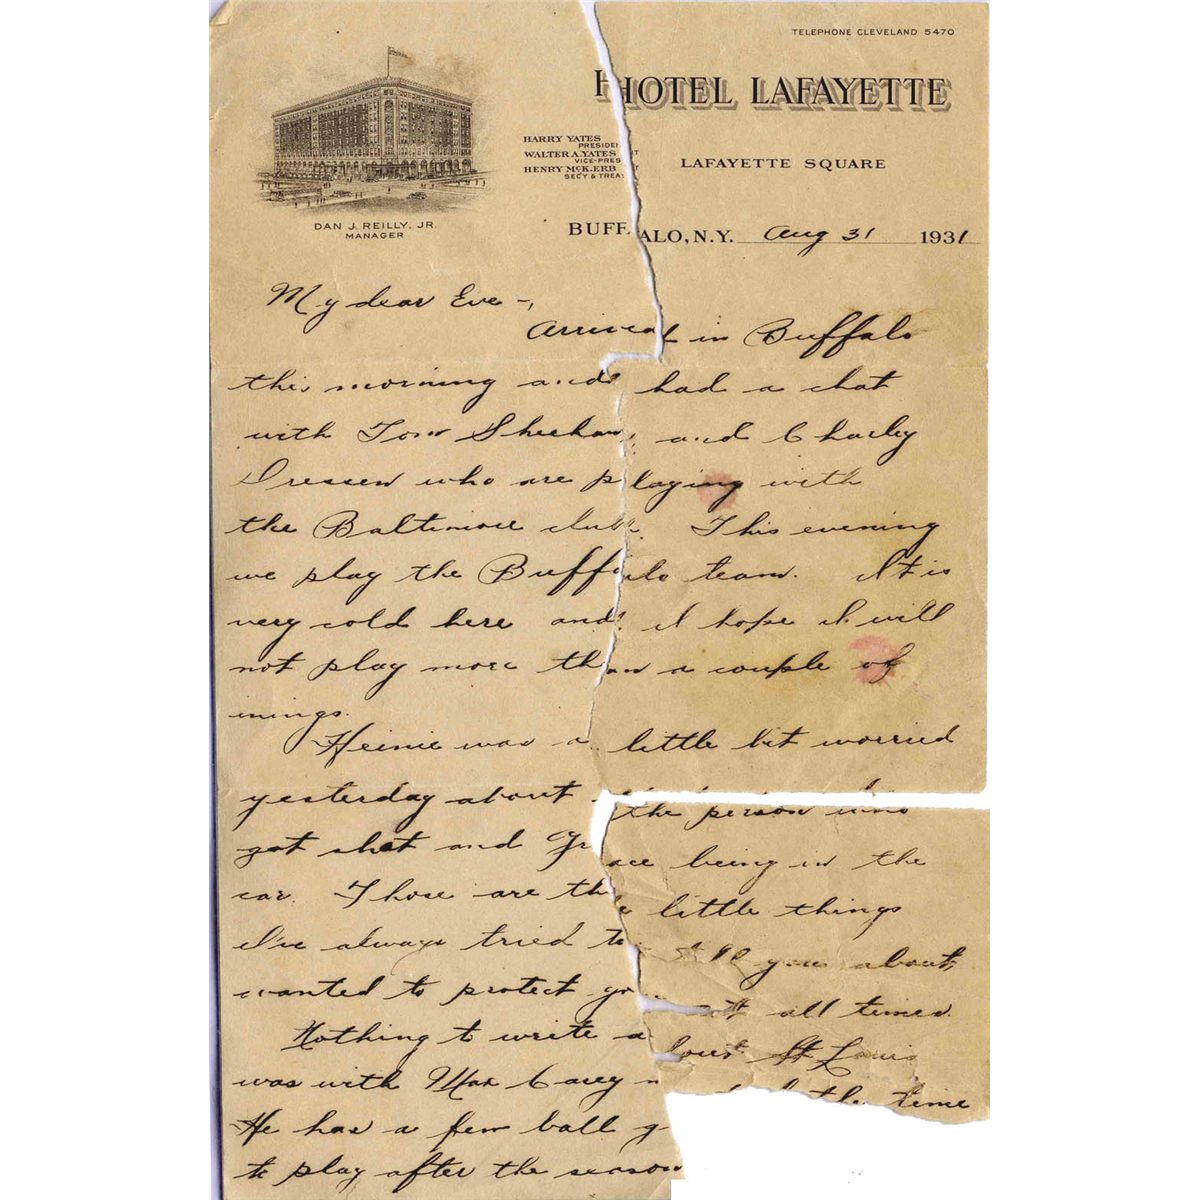 TELEPHONE CLEVELAND 5470
HOTEL LAFAYETTE
HARRY YATES
PRESIDENT
WALTER A. YATES
VICE-PRES
HENRY McK. ERB
SEC'Y & TREAS
LAFAYETTE SQUARE
DAN J. REILLY, JR.
MANAGER
BUFFALO, N.Y. Aug 31 1931
My dear Eve -,
Arrived in Buffalo
this morning and had a chat
with Tom Sheehan, and Charley
Dressen who are playing with
the Baltimore club. This evening
we play the Buffalo team. It is
very cold here and I hope I will
not play more than a couple of
innings.
Heinie was a little bit worried
yesterday about the person who
got shot and Grace being in the
car. Those are the little things
I've always tried to tell you about,
wanted to protect you at all times.
Nothing to write about St Louis
was with Max Carey the time
He has a few ball g
to play after the season